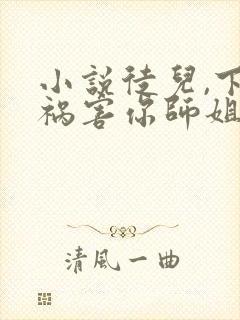 小説徒兒,下
禍害你師姐
清風一曲